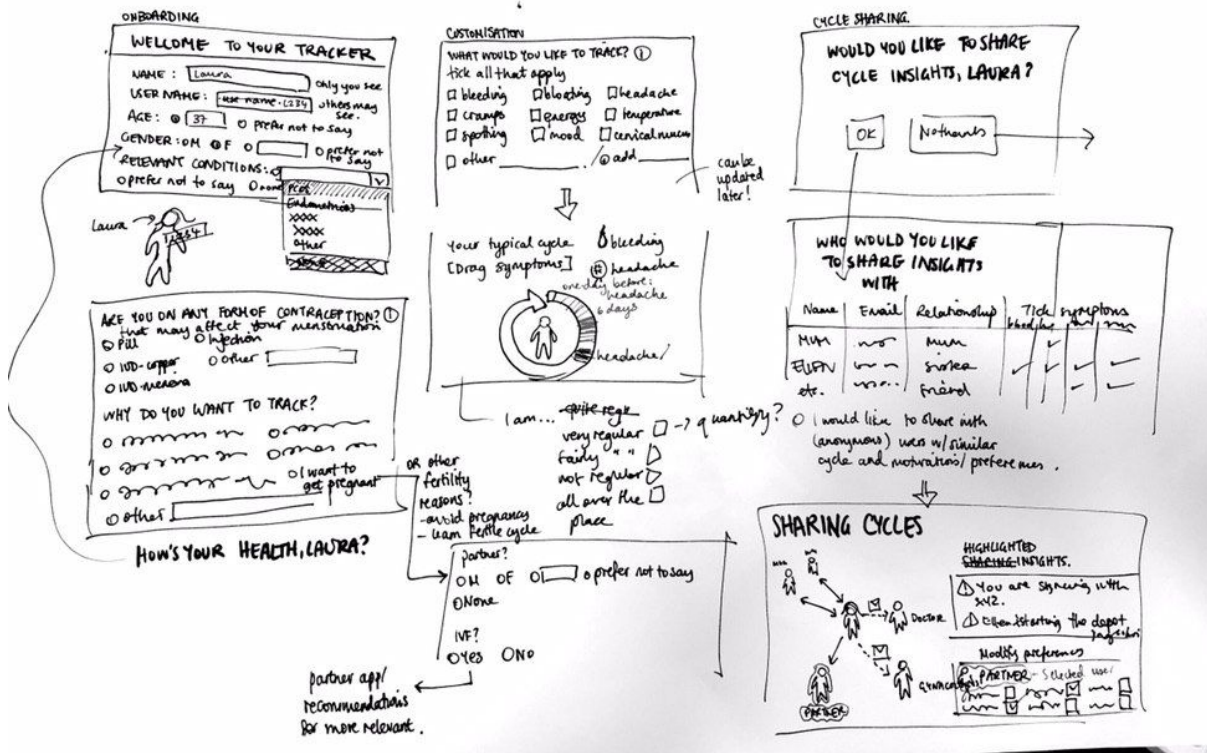 ONBOARDING
WELCOME TO YOUR TRACKER
NAME: Laura
only you see
USER NAME: user name.1234
others may see.
AGE: 37 prefer not to say
GENDER: M F prefer not to say
RELEVANT CONDITIONS:
prefer not to say none
PCOS
Endometriosis
xxxx
xxxx
other
Laura
1234
ARE YOU ON ANY FORM OF CONTRACEPTION? i
that may affect your menstruation
Pill Injection
IUD-copper other
IUD-mirena
WHY DO YOU WANT TO TRACK?
I want to
get pregnant
other
HOW'S YOUR HEALTH, LAURA?
CUSTOMISATION
WHAT WOULD YOU LIKE TO TRACK? i
tick all that apply
bleeding bloating headache
cramps energy temperature
spotting mood cervical mucus
other / add
can be
updated
later!
your typical cycle
[Drag symptoms]
bleeding
headache
one day before:
headache
6 days
headache
I am... quite regu
very regular → quantify?
fairly " "
not regular
all over the
place
OR other
fertility
reasons?
- avoid pregnancy
- learn fertile cycle
partner?
M F prefer not to say
None
IVF?
Yes No
partner app/
recommendations
for more relevant.
CYCLE SHARING.
WOULD YOU LIKE TO SHARE
CYCLE INSIGHTS, LAURA?
OK No thanks
WHO WOULD YOU LIKE
TO SHARE INSIGHTS
WITH
Name Email Relationship Tick symptoms
bleeding
MUM mum
sister
etc. friend
I would like to share with
(anonymous) users w/ similar
cycle and motivation/preferences.
SHARING CYCLES
HIGHLIGHTED
SHARING INSIGHTS.
You are syncing with
xyz.
starting the depot
Modify preferences
PARTNER - Selected user
DOCTOR
PARTNER